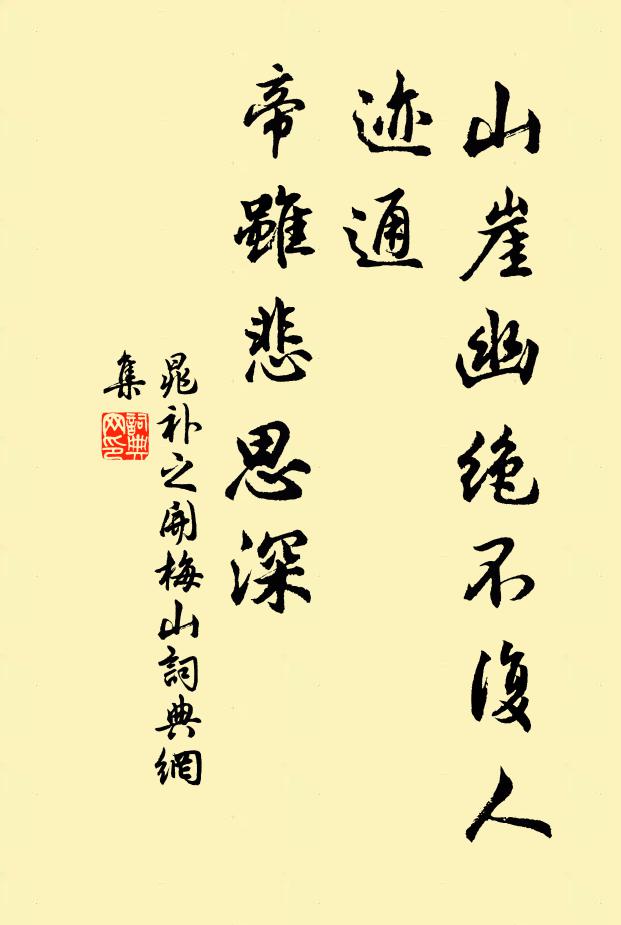 山崖幽绝不復人
迹通
帝雖悲思深
晁补之開梅山詞典網
集
詞典网印